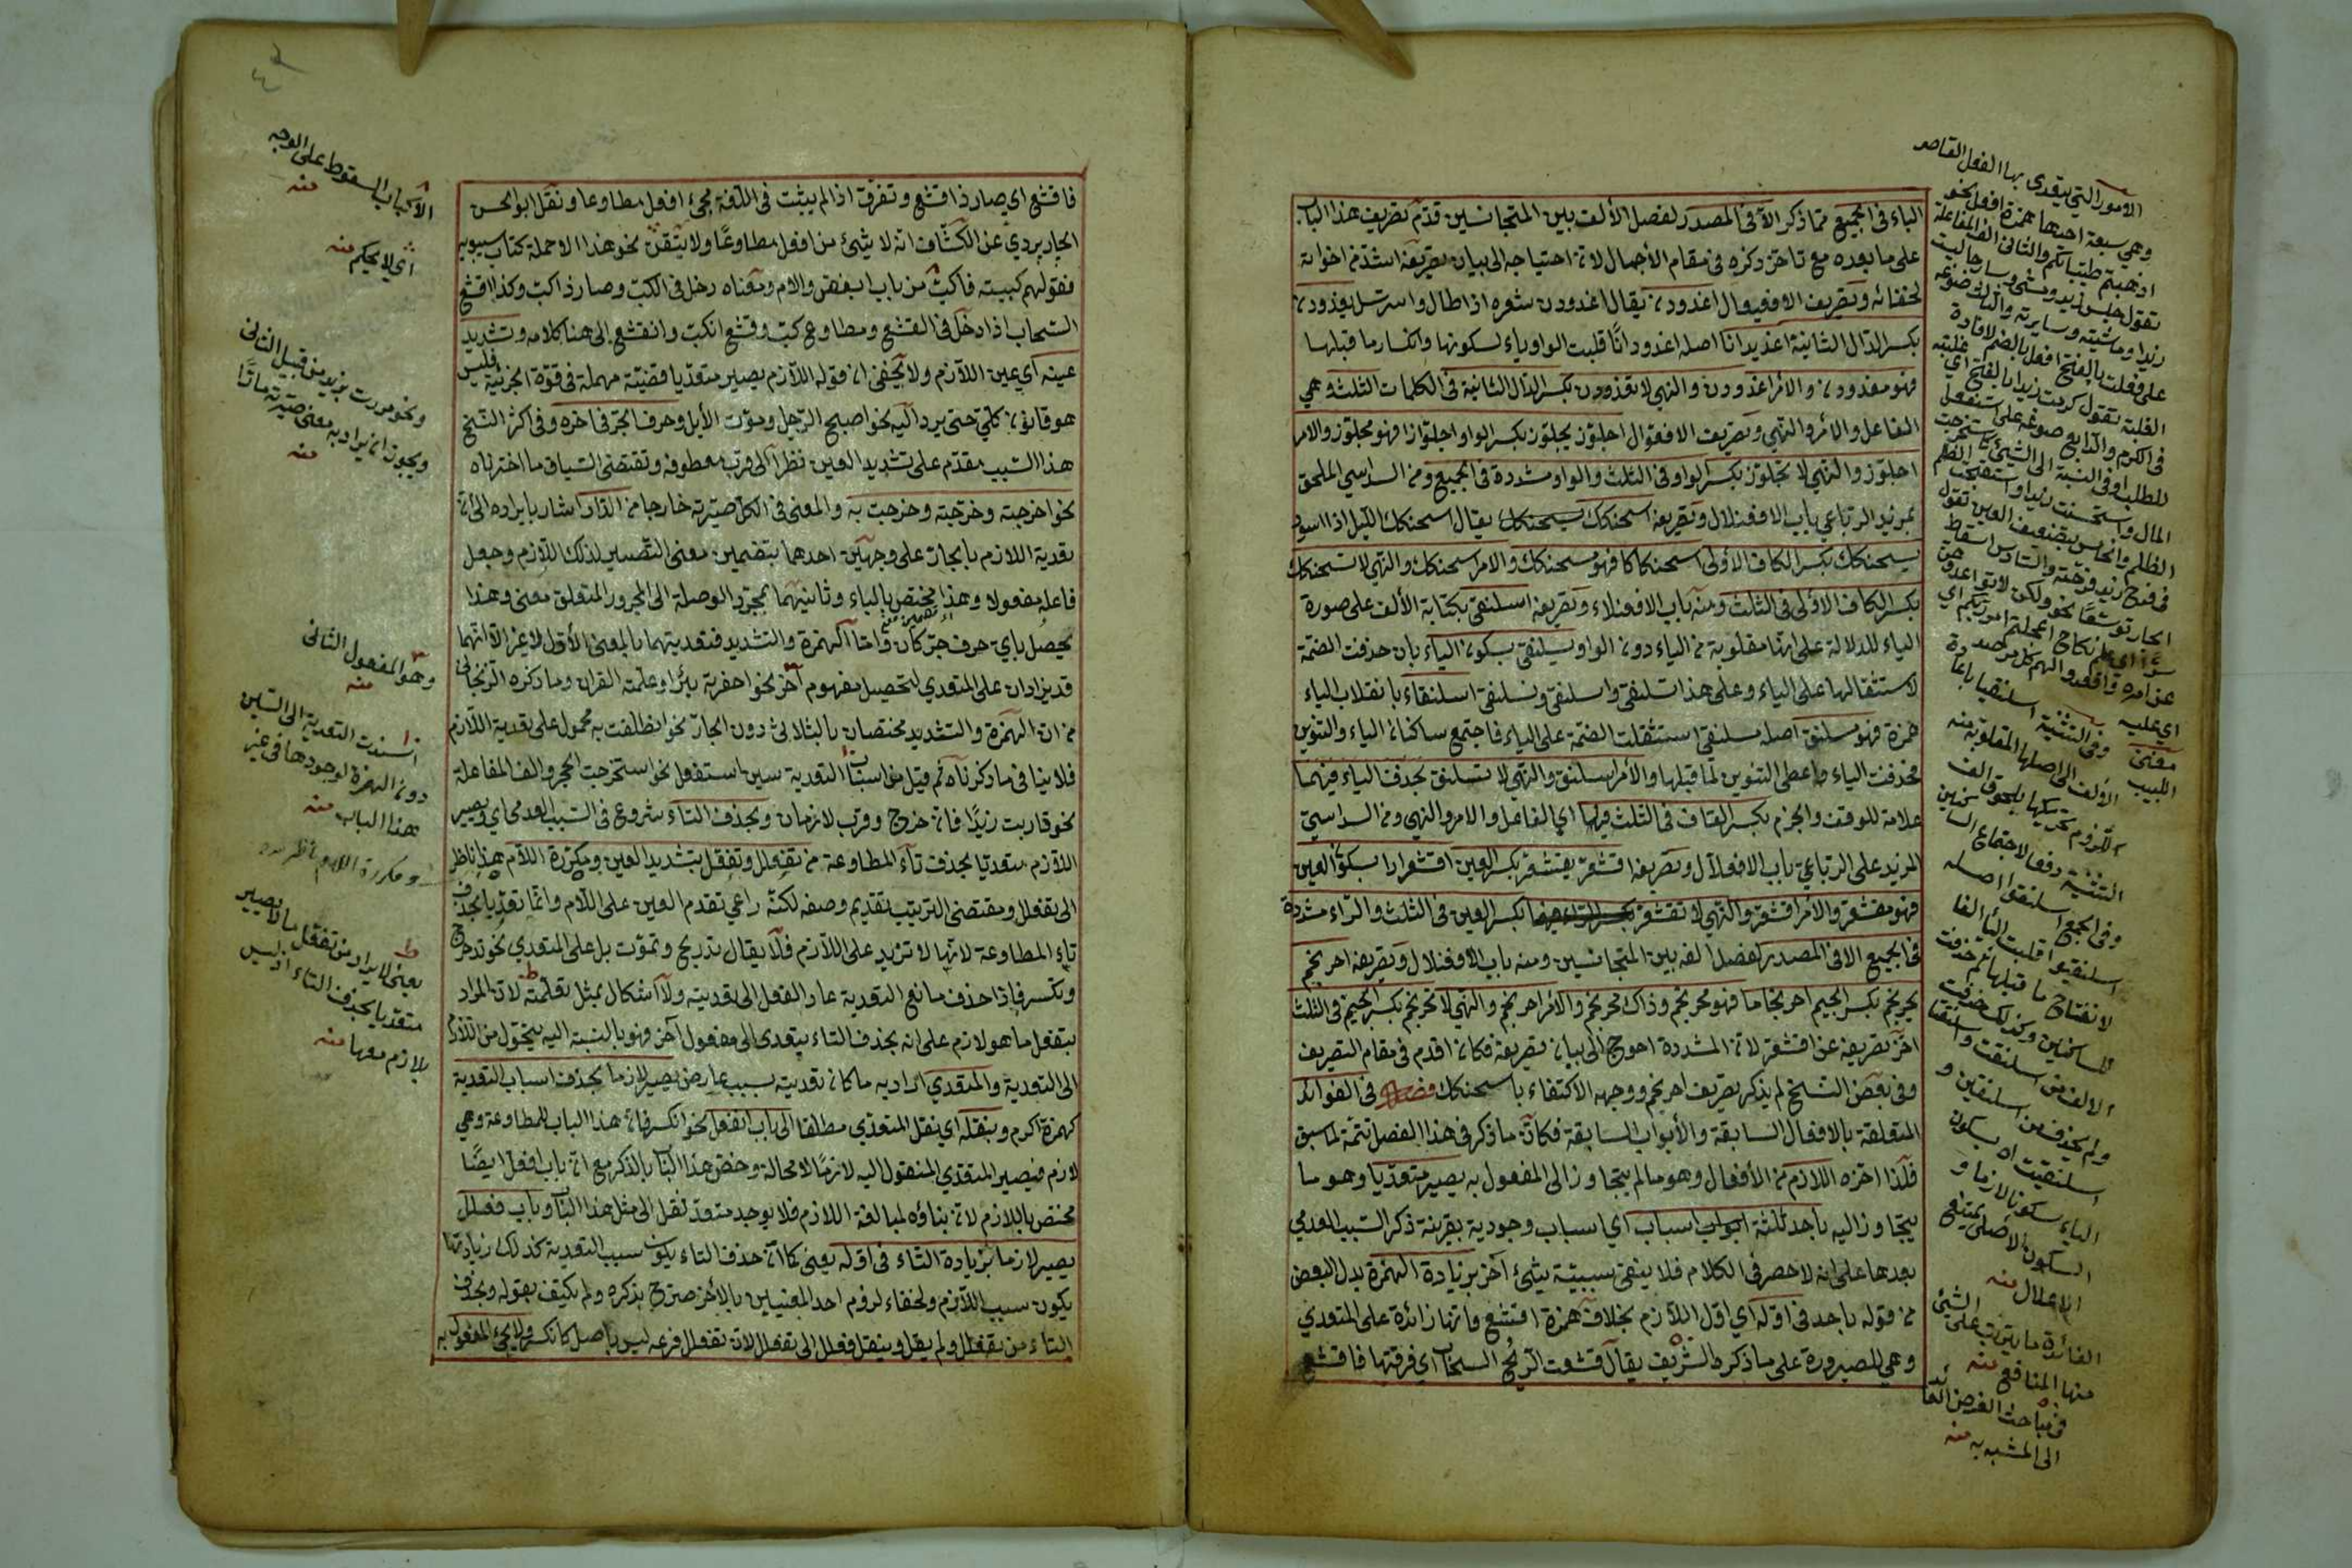 الباء في الجميع مما ذكر الا في المصدر لفصل الألف بين المتجانسين قدم تصريف هذا الباب
على ما بعده مع تأخر ذكره في مقام الأجمال لانه احتياجه الى بيان تصريفه اشد من اخواته
لخفائه وتصريف الافعيعال اغدودن يقال اغدودن شعره اذا طال واسترسل يغدودن
بكسر الدال الثانية اغديدانا اصله اغدودانا قلبت الواو ياء لسكونها وانكسار ما قبلها
فهو مغدودن والأمر اغدودن والنهي لا تغدودن بكسر الدال الثانية في الكلمات الثلث وهي
الفاعل والأمر والنهي وتصريف الافعوال اجلوز يجلوز بكسر الواو اجلوازا فهو مجلوز والامر
اجلوز والنهي لا تجلوز بكسر الواو في الثلث والواو مشددة في الجميع ومن السداسي الملحق
بمزيد الرباعي باب الافعنلال وتصريفه اسحنكك يسحنكك يقال اسحنكك الليل اذا اسود
يسحنكك بكسر الكاف الأولى اسحنكاكا فهو مسحنكك والامر اسحنكك والنهي لا تسحنكك
بكسر الكاف الاولى في الثلث ومنه باب الافعنلاء وتصريفه اسلنقى بكتابة الألف على صورة
الياء للدلالة على انها مقلوبة من الياء دون الواو يسلنقي بسكون الياء بان حذفت الضمة
لاستثقالها على الياء وعلى هذا تسلنقي واسلنقي ونسلنقي اسلنقاء بانقلاب الياء
همزة فهو مسلنق اصله مسلنقي استثقلت الضمة على الياء فاجتمع ساكنان الياء والتنوين
فحذفت الياء واعطي التنوين لما قبلها والأمر اسلنق والنهي لا تسلنق بحذف الياء فيهما
علامة للوقف والجزم بكسر القاف في الثلث فيها اي الفاعل والامر والنهي ومن السداسي
المزيد على الرباعي باب الافعلال وتصريفه اقشعر يقشعر بكسر العين اقشعرارا بسكون العين
فهو مقشعر والأمر اقشعر والنهي لا تقشعر بكسر العين في الثلث والراء مشددة
في الجميع الا في المصدر لفصل الفه بين المتجانسين ومنه باب الافعنلال وتصريفه احرنجم
يحرنجم بكسر الجيم احرنجاما فهو محرنجم وذاك محرنجم والأمر احرنجم والنهي لا تحرنجم بكسر الجيم في الثلث
اخر تصريفه عن اقشعر لان المشددة احوج الى بيان تصريفه فكان اقدم في مقام التصريف
وفي بعض النسخ لم يذكر تصريف احرنجم ووجهه الاكتفاء باسحنكك فصل في الفوائد
المتعلقة بالافعال السابقة والأبواب السابقة فكان ما ذكر في هذا الفصل تتمة لما سبق
فلذا اخره اللازم من الأفعال وهو ما لم يتجاوز الى المفعول به يصير متعديا وهو ما
يتجاوز اليه باحد ثلثة اسباب اي اسباب وجودية بقرينة ذكر السبب العدمي
بعدها على انه لا حصر في الكلام فلا ينفي سببية شيء آخر بزيادة الهمزة بدل البعض
من قوله باحد في اوله اي اول اللازم بخلاف همزة اقشع فانها زائدة على المتعدي
وهي للصيرورة على ما ذكره الشريف يقال قشعت الريح السحاب اي فرقتها فاقشع
الامور التي يتعدى بها الفعل القاصر
وهي سبعة احدها همزة افعل نحو
اذهبتم طيباتكم والثاني الف المفاعلة
تقول جلس زيد ومشى وسار جالست
زيدا وماشيته وسايرته والثالث صوغه
على فعلت بالفتح افعل بالضم لافادة
الغلبة تقول كرمت زيدا بالفتح اي غلبته
في الكرم والرابع صوغه على استفعل
للطلب او في النسبة الى الشيء كاستخرجت
المال واستحسنت زيدا واستقبحت الظلم
والخامس تضعيف العين تقول
في فرح زيد فرحته والسادس اسقاط
الجار توسعا نحو ولكن لا تواعدوهن
سرا اي على نكاح اعجلتم امر ربكم اي
عن امره واقعدوا لهم كل مرصد
اي عليه
مغنى
اللبيب
وفي التثنية اسلنقيا باعادة
الألف الى اصلها المقلوبة منه
للزوم تحريكها بلحوق الف
التثنية دفعا لاجتماع الساكنين
وفي الجمع اسلنقوا اصله
اسلنقيوا قلبت الياء الفا
لانفتاح ما قبلها ثم حذفت
للساكنين وكذلك حذفت
الالف من اسلنقت واسلنقتا
ولم يحذف من اسلنقين و
اسلنقيت اه بسكون
الياء سكونا لازما و
السكون الاصلي يمتنع
الإعلال منه
الفائدة ما يترتب على الشيء
منها المنافع منه
في مباحث الغرض العائد
الى المشبه به منه
فاقشع اي صار ذا قشع وتفرق اذا لم يثبت في اللغة مجيء افعل مطاوعا ونقل ابو الحسن
الجاربردي عن الكشاف انه لا شيء من افعل مطاوعا ولا يتقن نحو هذا الا حملة كتاب سيبويه
فقولهم كببته فاكب من باب انفض والام ومعناه دخل في الكب وصار ذا كب وكذا اقشع
السحاب اذا دخل في القشع ومطاوع كب وقشع انكب وانقشع الى هنا كلامه وتشديد
عينه اي عين اللازم ولا يخفى ان قوله اللازم يصير متعديا قضية مهملة في قوة الجزئية فليس
هو قانون كلي حتى يرد اليه نحو اصبح الرجل وموت الأبل وحرف الجر في اخره وفي اكثر النسخ
هذا السبب مقدم على تشديد العين نظرا الى قرب معطوفه وتقتضي السياق ما اخترناه
نحو اخرجته وخرجته وخرجت به والمعنى في الكل صيرته خارجا من الدار اشار بايراده الى ان
تعدية اللازم بالجار على وجهين احدهما بتضمين معنى التصيير لذلك اللازم وجعل
فاعله مفعولا وهذا مختص بالباء وثانيهما بمجرد الوصلة الى المجرور المتعلق معنى وهذا
يحصل باي حرف جر كان واما الهمزة والتشديد فتعديتهما بالمعنى الأول لا غير الا انهما
قد يزادان على المتعدي لتحصيل مفهوم آخر نحو احفرته بئرا وعلمته القران وما ذكره الزنجاني
من ان الهمزة والتشديد مختصان بالثلاثي دون الجار نحو انطلقت به محمول على تعدية اللازم
فلا ينافي ما ذكرناه ثم قيل من اسباب التعدية سين استفعل نحو استخرجت الحجر والف المفاعلة
نحو قاربت زيدا فان خرج وقرب لازمان وبحذف التاء شروع في السبب العدمي اي ويصير
اللازم متعديا بحذف تاء المطاوعة من تفعلل وتفعل بتشديد العين ومكررة اللام هذا ناظر
الى تفعلل ومقتضى الترتيب تقديم وصفه لكنه راعي تقدم العين على اللام وانما تعديا بحذف
تاء المطاوعة لانها لا تزيد على اللازم فلا يقال تدريج وتموت بل على المتعدي نحو تدحرج
وتكسر فاذا حذف مانع التعدية عاد الفعل الى تعديته ولا اشكال بمثل تعلمته لان المراد
بتفعل ما هو لازم على انه بحذف التاء يتعدى الى مفعول آخر فهو بالنسبة اليه يتحول من اللازم
الى التعدية والمتعدي اراد به ما كان تعديته بسبب عارض يصير لازما بحذف اسباب التعدية
كهمزة اكرم وبنقله اي نقل المتعدي مطلقا الى باب انفعل نحو انكسر فان هذا الباب للمطاوعة وهي
لازم فيصير المتعدي المنقول اليه لازما لا محالة وخص هذا الباب بالذكر مع ان باب افعل ايضا
مختص باللازم لان بناؤه لمبالغة اللازم فلا يوجد متعد نقل الى مثل هذا الباب وباب فعلل
يصير لازما بزيادة التاء في اوله يعني كما ان حذف التاء يكون سبب التعدية كذلك زيادتها
يكون سبب اللازم ولخفاء لزوم احد المعنيين بالأخر صرح بذكره ولم يكتف بقوله وبحذف
التاء من تفعلل ولم يقل وبنقل فعلل الى تفعلل لان تفعلل فرعه ليس باصل كانكسر ولا يجيء المفعول به
الاكباب السقوط على الوجه
منه
اي لا يحكم منه
ونحو مررت بزيد من قبيل الثاني
ويجوز ان يراد به معنى صيرته مارا
منه
وهو المفعول الثاني
منه
اسندت التعدية الى السين
دون الهمزة لوجودها في غير
هذا الباب منه
ومكررة اللام ناظر
يعني لا يراد من تفعل ما لا يصير
متعديا بحذف التاء اذ ليس
بلازم معها منه